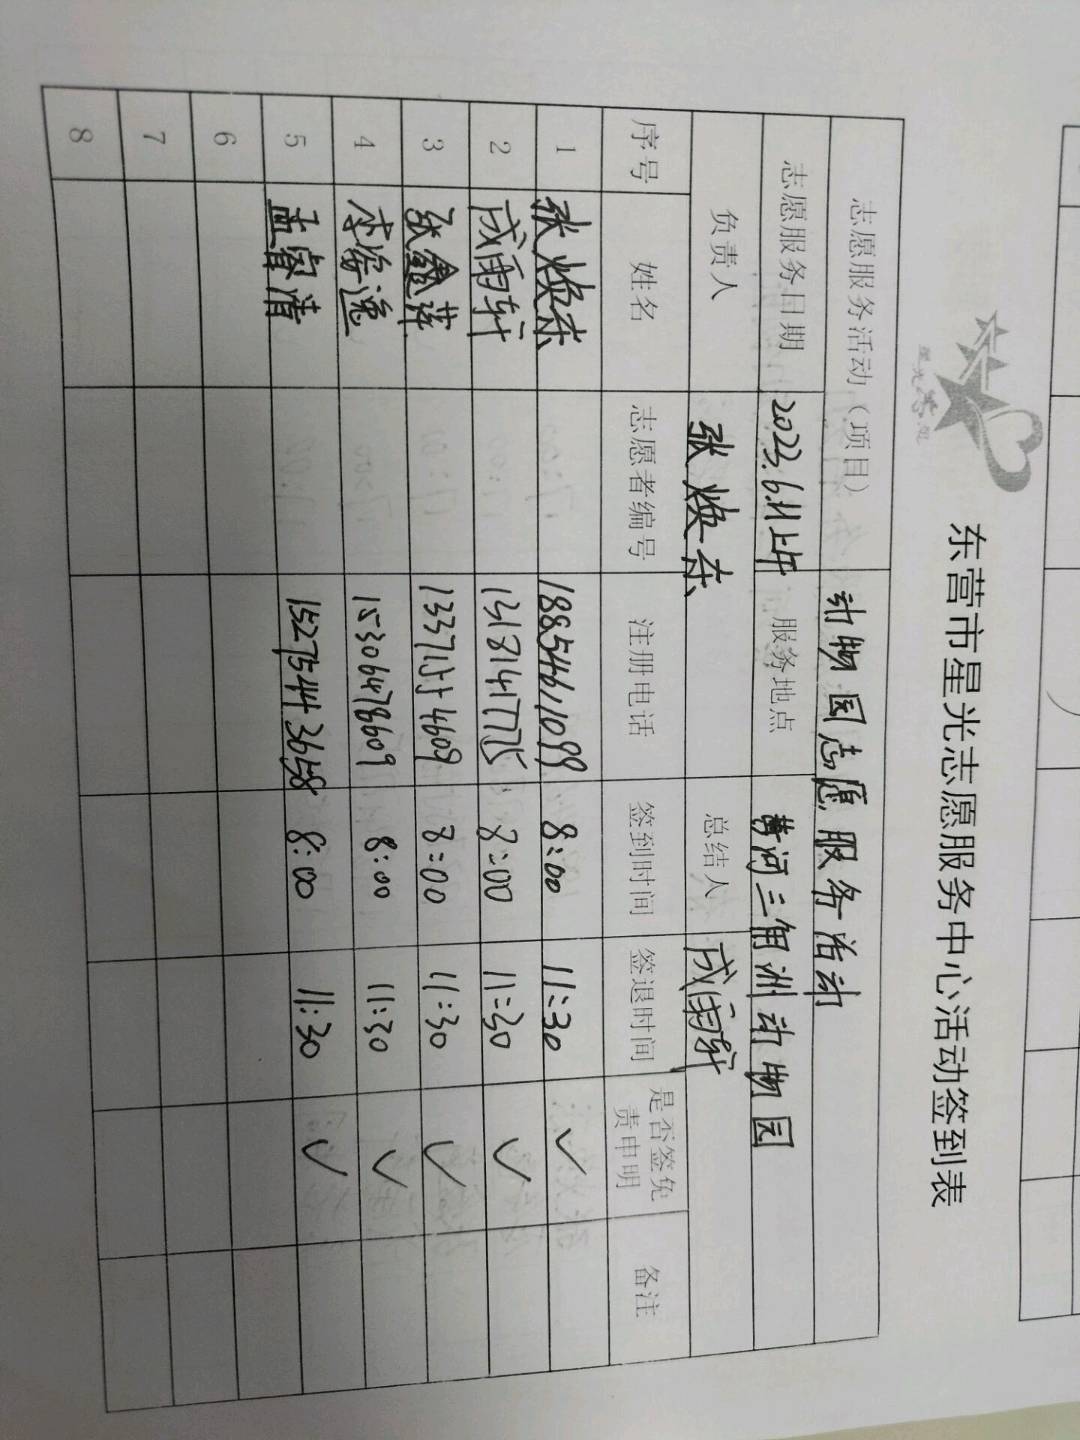 东营市星光志愿服务中心活动签到表
志愿服务活动（项目） 动物园志愿服务活动
志愿服务日期 2023.6.11上午 服务地点 黄河三角洲动物园
负责人 张焕东 总结人 成雨轩
序号 姓名 志愿者编号 注册电话 签到时间 签退时间 是否签免责申明 备注
1 张焕东 1885461099 8:00 11:30 ✓
2 成雨轩 13181417775 8:00 11:30 ✓
3 张鑫萍 13371554609 8:00 11:30 ✓
4 李 逸 15306478609 8:00 11:30 ✓
5 孟睿清 15275443658 8:00 11:30 ✓
6
7
8